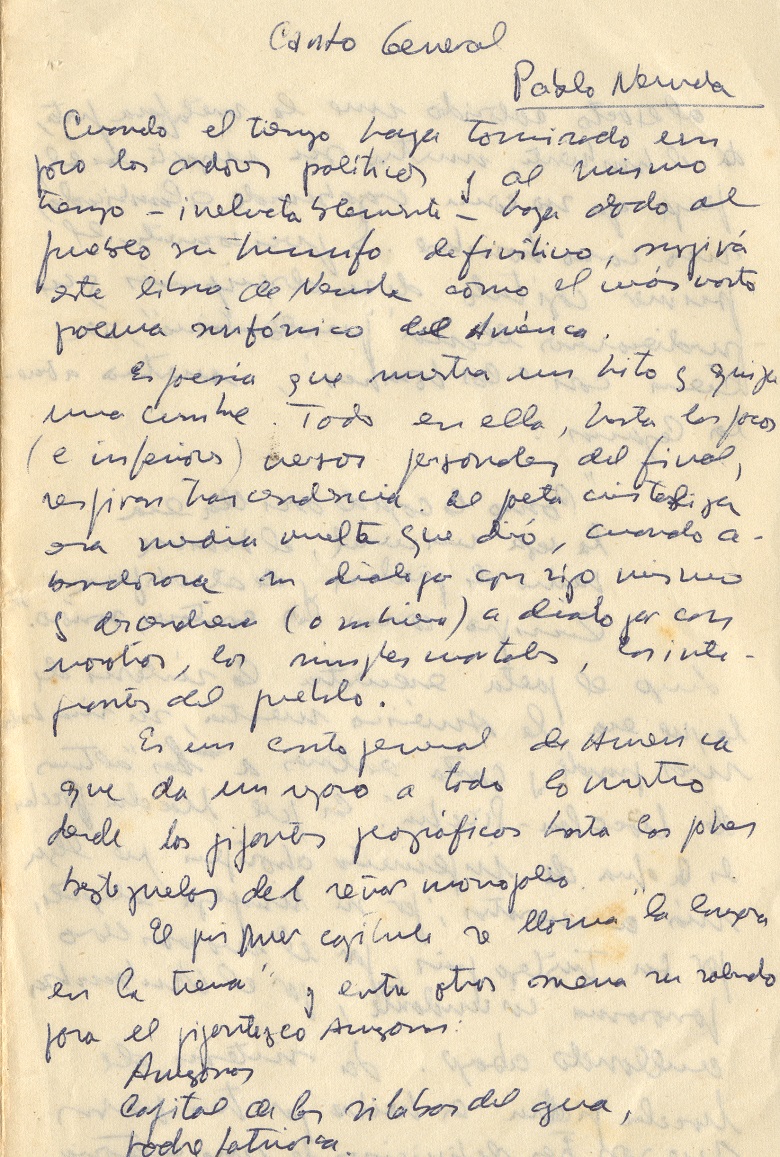 Canto General
Pablo Neruda
Cuando el tiempo haya tamizado un
poco los ardores políticos y al mismo
tiempo – ineluctablemente – haya dado al
pueblo su triunfo definitivo, surgirá
este libro de Neruda como el más vasto
poema sinfónico de América.
Es poesía que muestra un hito y quizá
una cumbre. Todo en ella, hasta los pocos
(e inferiores) versos personales del final,
respiran trascendencia. El poeta cristaliza
esa media vuelta que dió, cuando a-
bandonara su diálogo consigo mismo
y descendiera (o subiera) a dialogar con
nosotros, los simples mortales, los inte-
grantes del pueblo.
Es un canto general de América
que da un repaso a todo lo nuestro
desde los gigantes geográficos hasta las pobres
bestezuelas del señor monopolio.
El primer capítulo se llama "La lámpara
en la tierra" y entre otros suena su saludo
para el gigantesco Amazonas:
Amazonas
Capital de las sílabas del agua,
padre patriarca.